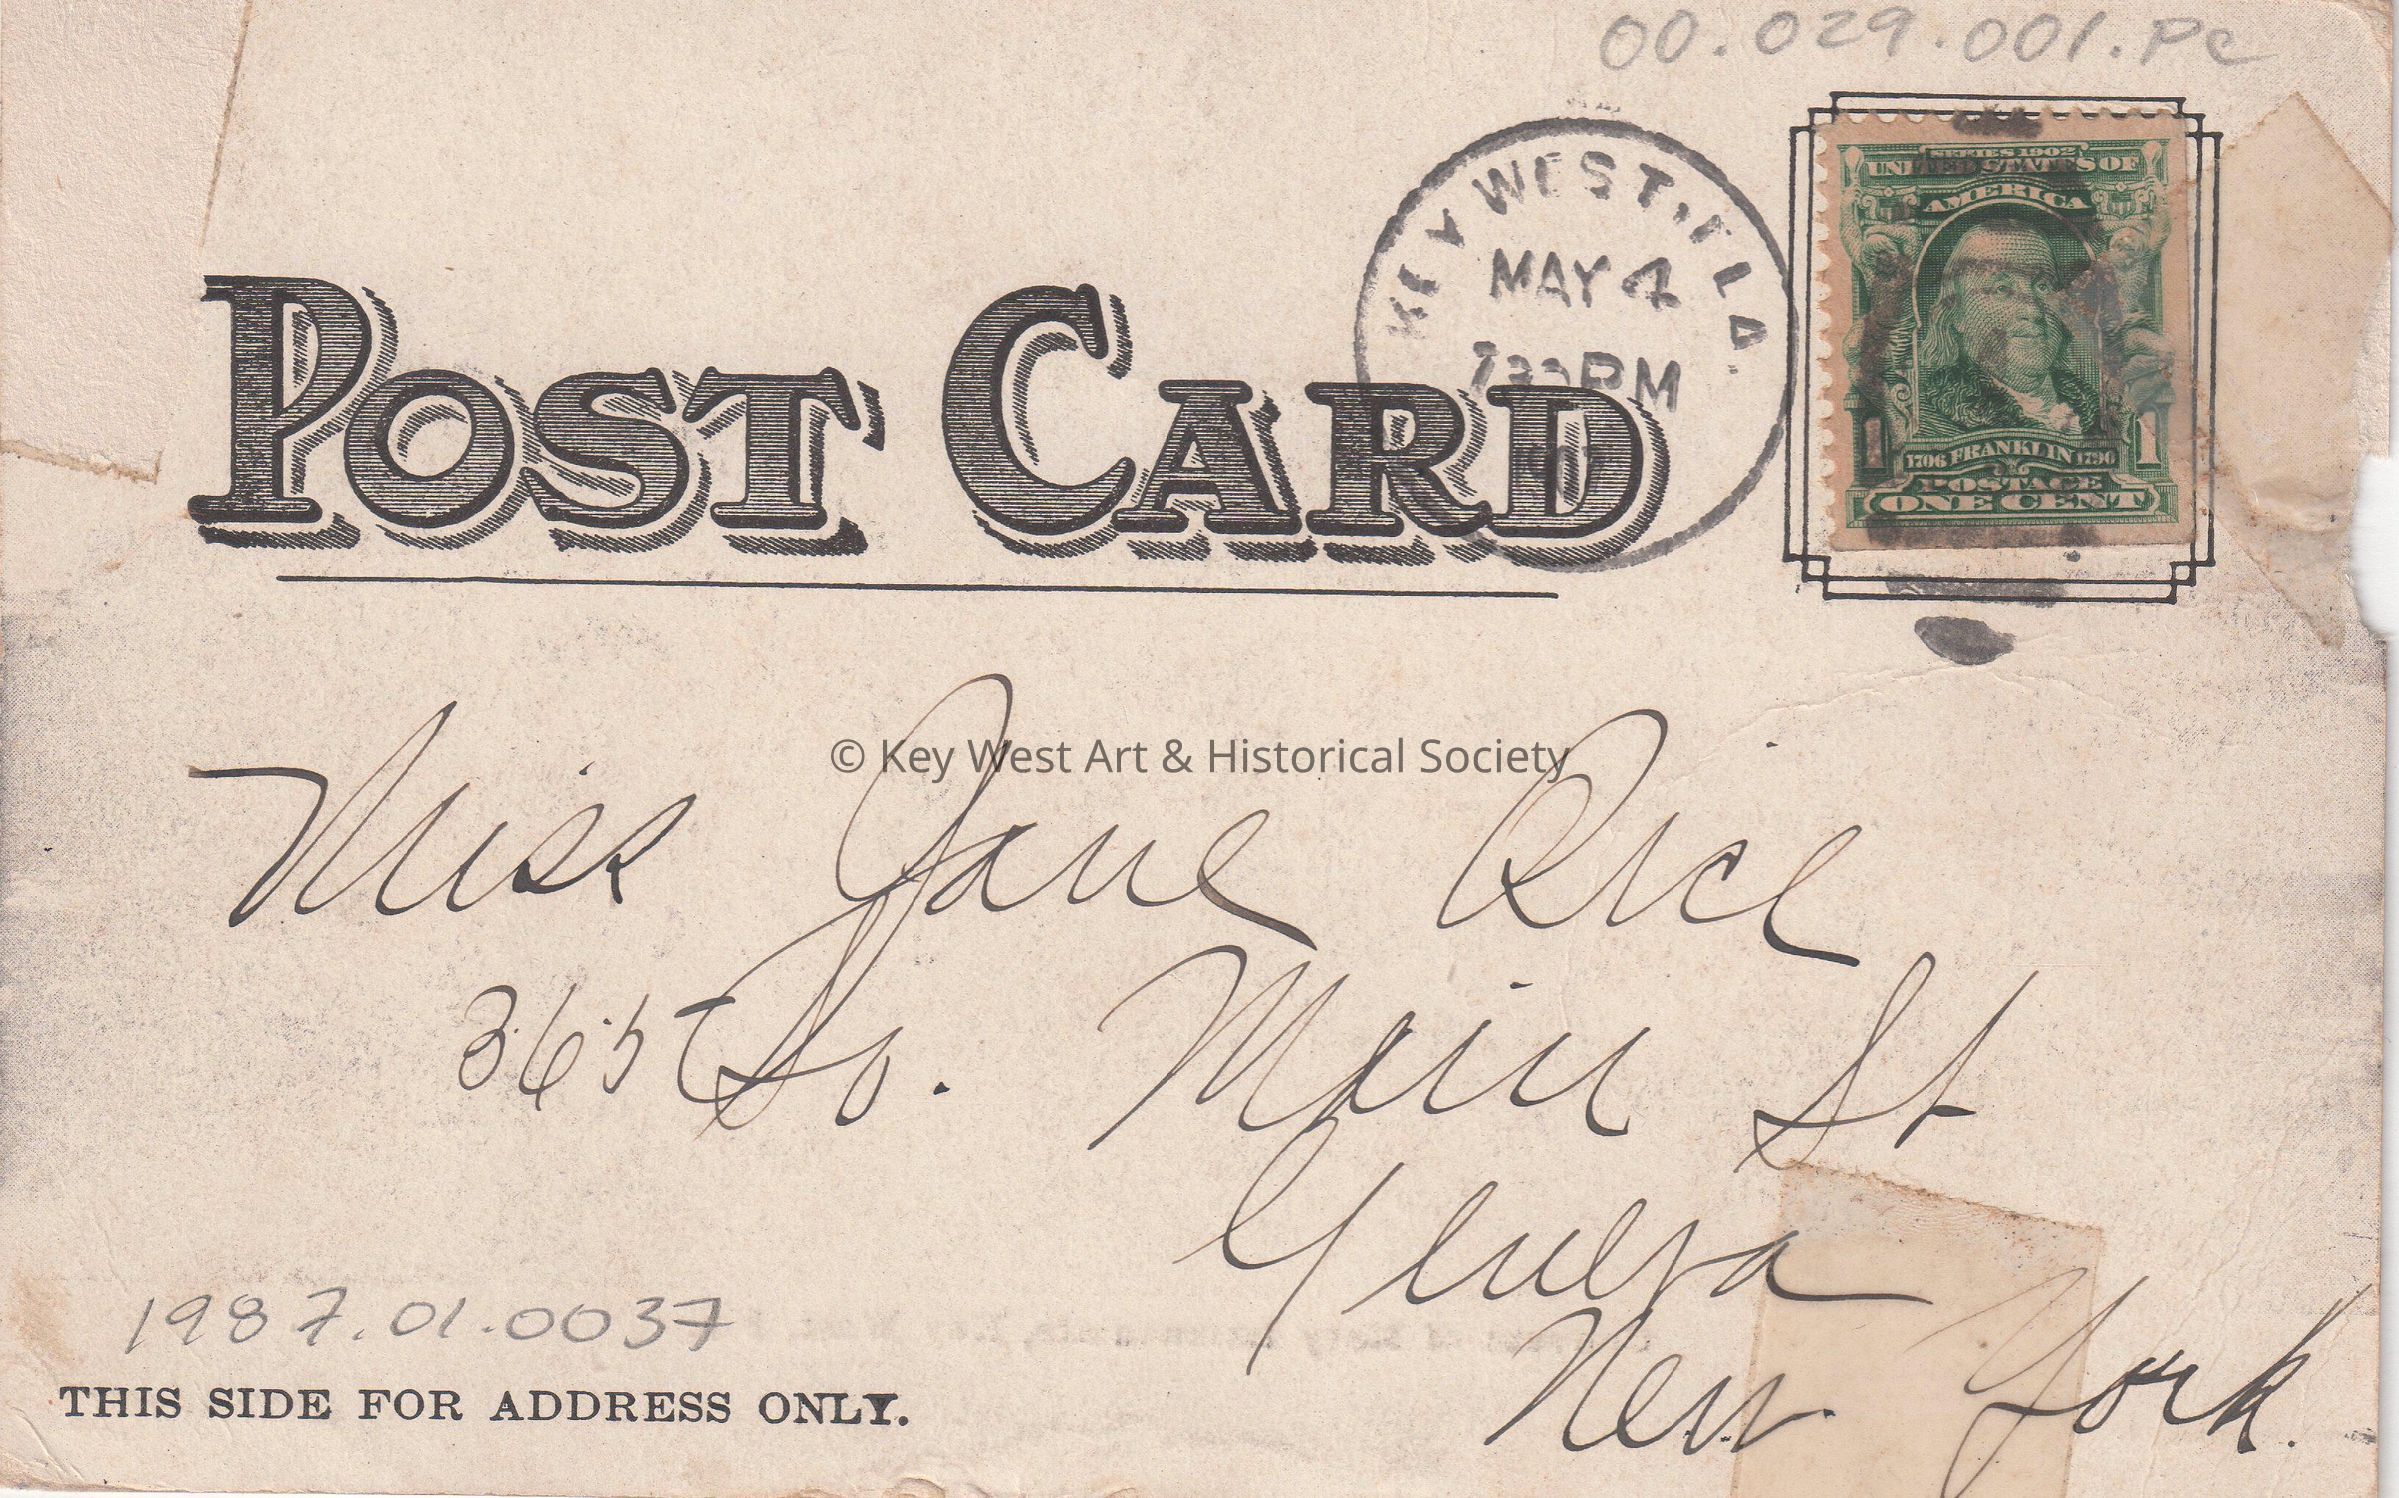 00.029.001.PC
KEY WEST, FLA.
MAY 4
PM
SERIES 1902
UNITED STATES OF
AMERICA
1706 FRANKLIN 1790
POSTAGE
1 1
ONE CENT
POST CARD
© Key West Art & Historical Society
Miss Jane Rice
365 So. Main St
Geneva
New York.
1987.01.0037
THIS SIDE FOR ADDRESS ONLY.